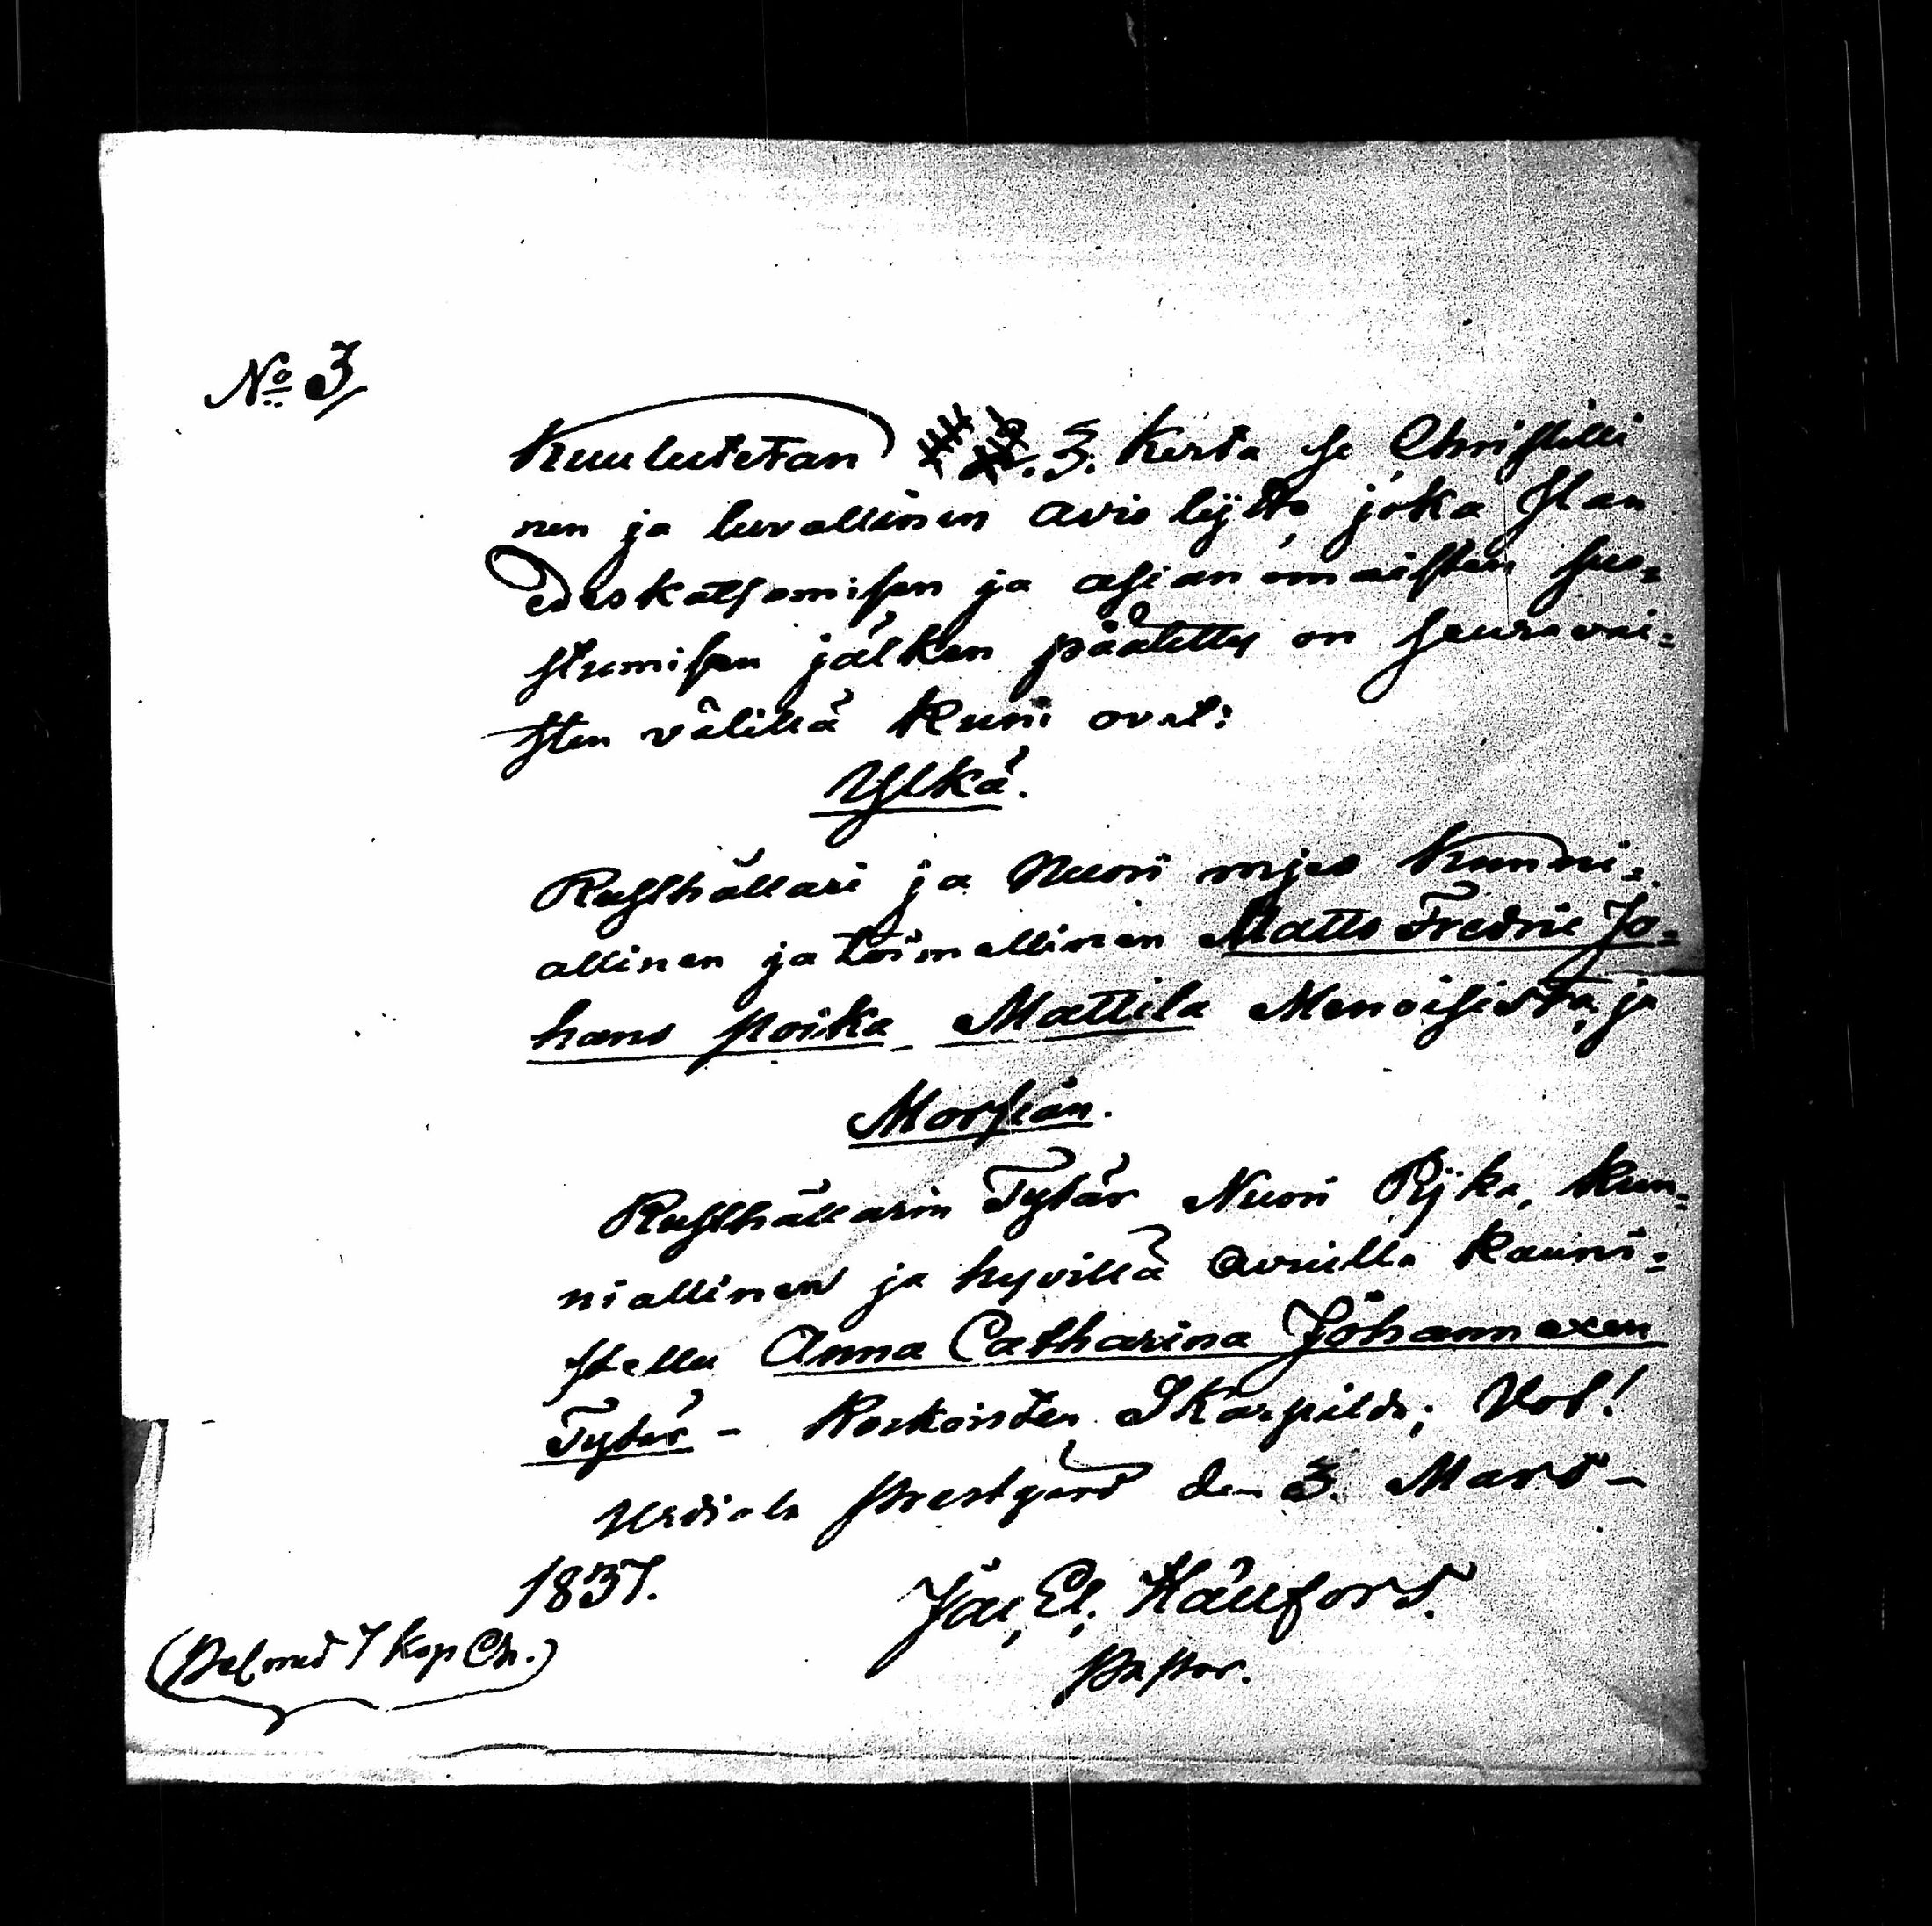 No 3
Kuulutetan 3. Kerta se Christilli
nen ja luvallinen avio lijtto, joka Jlan
Edeskatsomisen ja asian omaisten suo=
stumisen jälken päätetty on seuravai=
sten välillä kuni ovat:
Yljkä.
Rusthållari ja Nuori mjes kunni=
allinen ja toimellinen Matts Fredric Jo=
hans poika Mattila Menoisista, ja
Morsian.
Rusthållarin Tytär Nuori Pijka, kun=
niallinen ja hyvillä avuilla kauni=
stettu Anna Catharina Johannexen
Tytär - Koskoisten Skarpilda; Hof!
Urdiala Prestgård den 3. Mars
1837.
Jac. El. Hällfors.
Pastor.
(Bet. med 7 Kop Ch.)